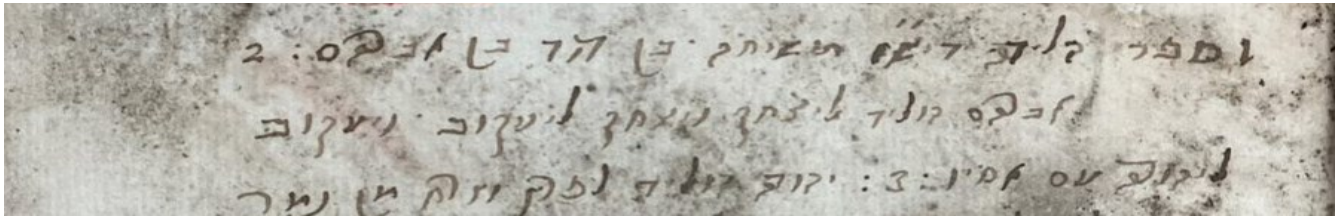 1 ספר הליד דיש״ו משיחה בן דוד בן אברהם : 2
אברהם הוליד ליצחק ויצחק ליעקוב ויעקוב
ליהודה עם אחיו : 3 : יהודה הוליד מן תמר